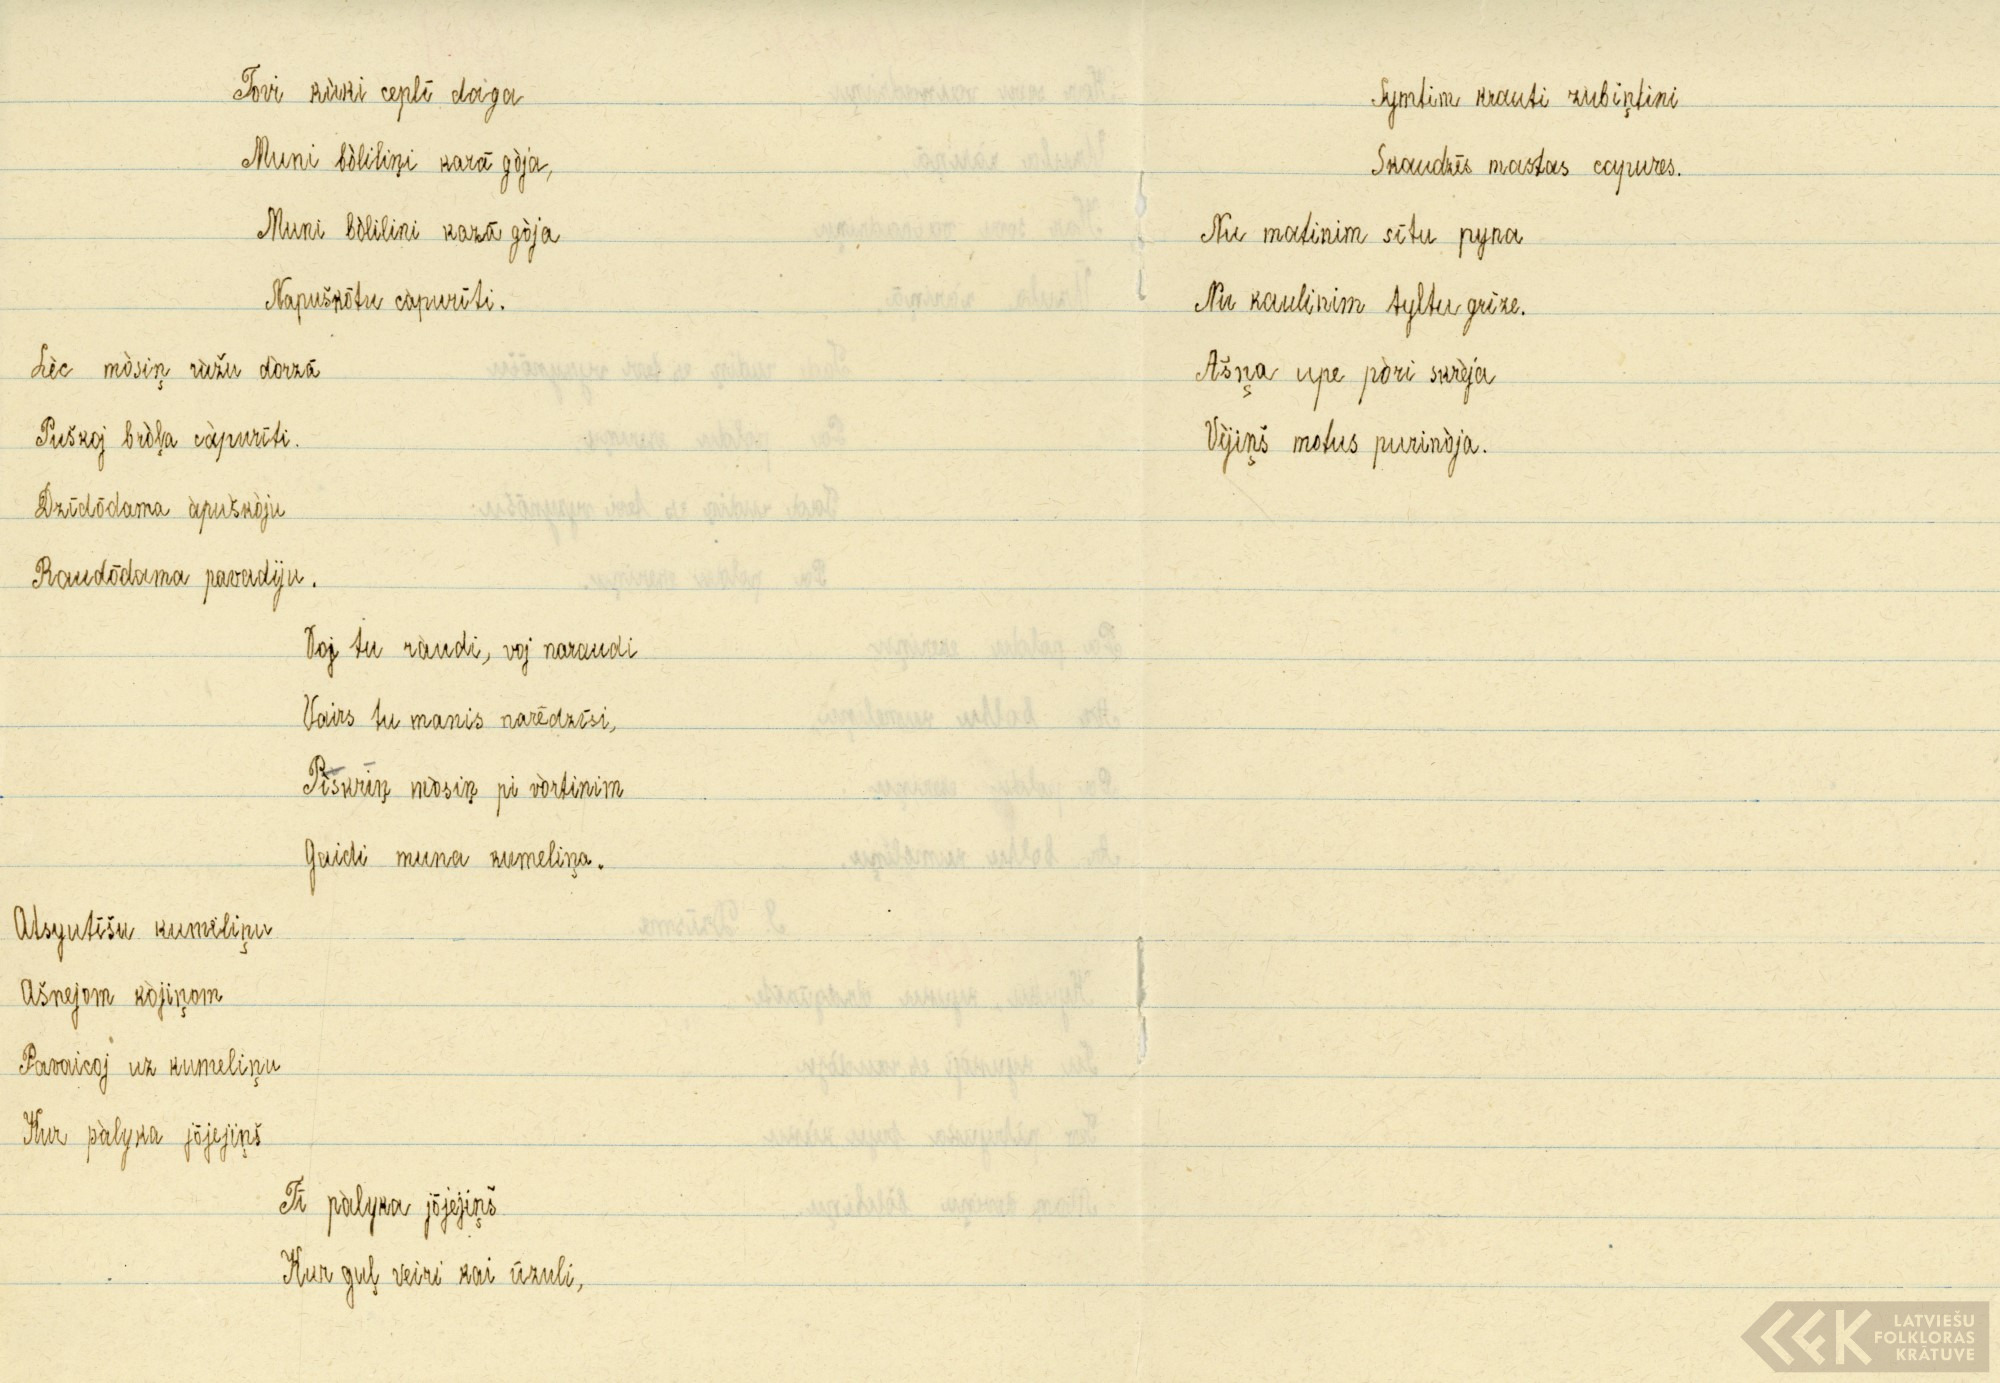 Tovi kùki ceplī daiga
Muni bòliliņi karā gòja,
Muni bòlilini karā gòja
Napuškōtu càpurīti.
Lèc mòsiņ ràžu dòrzā
Puškoj bròļa càpurīti.
Dzīdōdama àpuškòju
Raudōdama pavadīju.
Voj tu ràudi, voj naraudi
Vairs tu manis narēdzēsi,
Pīškrīņ mòsiņ pi vòrtinim
Gaidi muna kumeliņa.
Atsyutīšu kumèliņu
Ašnejom kòjiņom
Pavaicoj uz kumeliņu
Kur pàlyka jōjejiņš
Tī pàlyka jōjejiņš
Kur guļ veiri kai ūzuli,
Symtim krauti zubiņtini
Skaudzēs mastas capures.
Nu matinim sītu pyna
Nu kaulinim tyltu grīze.
Ašņa upe pòri skrèja
Vèjiņš motus purinòja.
LATVIEŠU
FOLKLORAS
KRĀTUVE